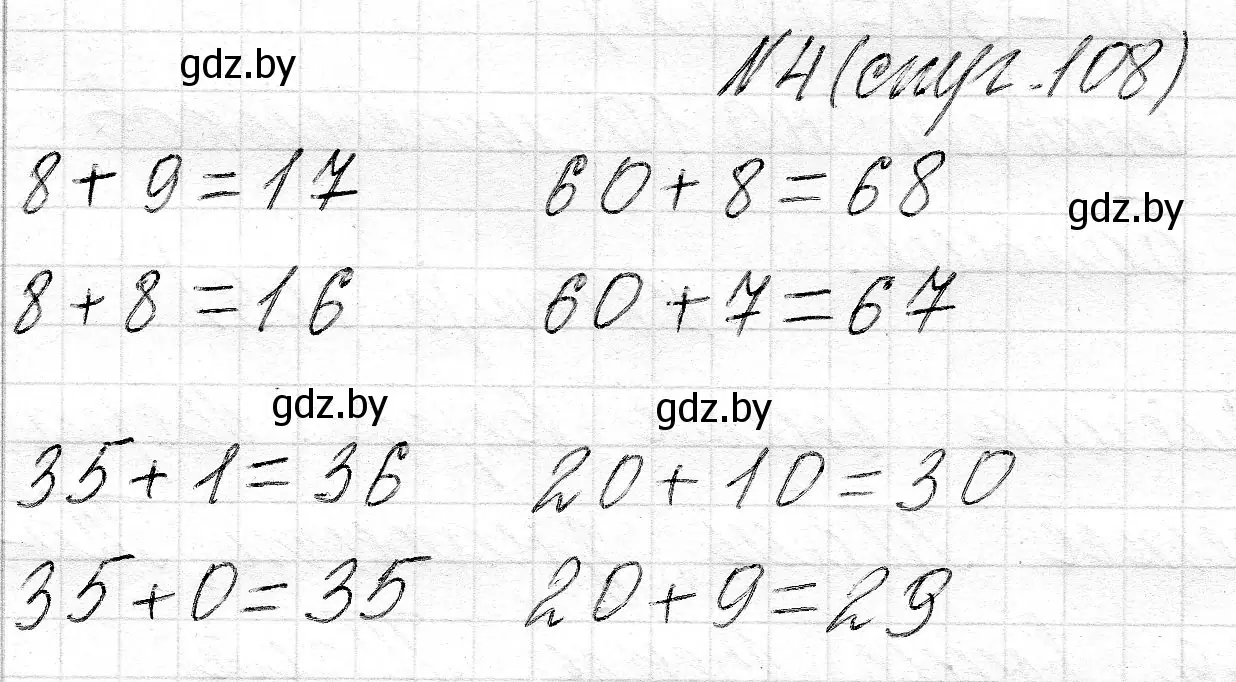 gdz.by
№4 (стр. 108)
8 + 9 = 17
60 + 8 = 68
gdz.by
8 + 8 = 16
60 + 7 = 67
gdz.by
gdz.by
35 + 1 = 36
20 + 10 = 30
35 + 0 = 35
20 + 9 = 29